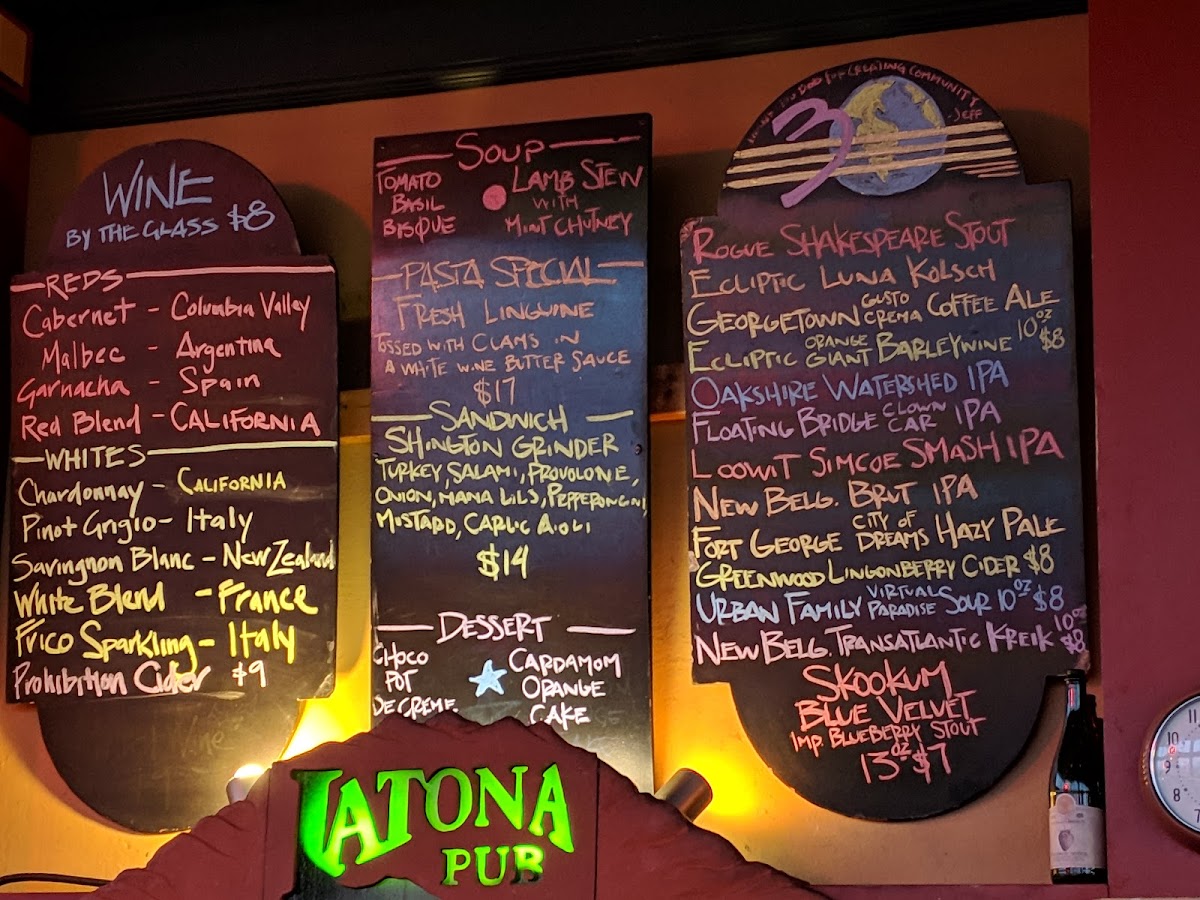 WINE
BY THE GLASS $8
REDS
Cabernet - Columbia Valley
Malbec - Argentina
Garnacha - Spain
Red Blend - CALIFORNIA
WHITES
Chardonnay - CALIFORNIA
Pinot Grigio - Italy
Savingnon Blanc - New Zealand
White Blend - France
Frico Sparkling - Italy
Prohibition Cider $9
SOUP
TOMATO BASIL BISQUE
LAMB STEW WITH MINT CHUTNEY
PASTA SPECIAL
FRESH LINGUINE
TOSSED WITH CLAMS IN
A WHITE WINE BUTTER SAUCE
$17
SANDWICH
SHINGTON GRINDER
TURKEY, SALAMI, PROVOLONE,
ONION, MAMA LILS, PEPPERONCINI,
MUSTARD, GARLIC AIOLI
$14
DESSERT
CHOCO POT DE CREME
CARDAMOM ORANGE CAKE
FOR CREATING COMMUNITY
- JEFF
3
ROGUE SHAKESPEARE STOUT
ECLIPTIC LUNA KOLSCH
GEORGETOWN GUSTO CREMA COFFEE ALE
ECLIPTIC ORANGE GIANT BARLEYWINE 10oz $8
OAKSHIRE WATERSHED IPA
FLOATING BRIDGE CLOWN CAR IPA
LOOWIT SIMCOE SMASH IPA
NEW BELG. BRUT IPA
FORT GEORGE CITY OF DREAMS HAZY PALE
GREENWOOD LINGONBERRY CIDER $8
URBAN FAMILY VIRTUAL PARADISE SOUR 10oz $8
NEW BELG. TRANSATLANTIC KREIK 10oz $8
SKOOKUM
BLUE VELVET
IMP. BLUEBERRY STOUT
13oz $7
TATONA
PUB
10
9
8
7
11